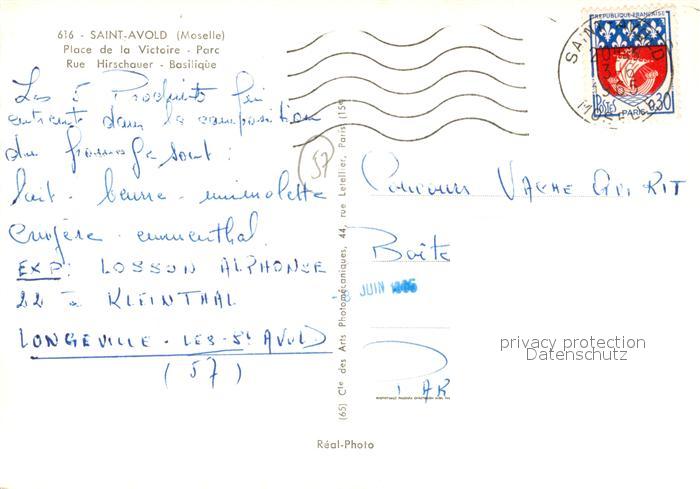 616 - SAINT-AVOLD (Moselle)
Place de la Victoire - Parc
Rue Hirschauer - Basilique
Les 5 Produits qui
entrent dans la composition
du fromage sont :
lait - beurre - mimolette
cruyère - emmenthal.
EXP : LOSSON ALPHONSE
22 KLEINTHAL
LONGEVILLE - LES - St AVOLD
(57)
57
(65) Cie des Arts Photomécaniques, 44, rue Letellier, Paris (15e)
RÉPUBLIQUE FRANÇAISE
POSTES
0,30
PARIS
SAINT AVOLD
MOSELLE
Concours VACHE QUI RIT
Boîte
JUIN
PAR
privacy protection
Datenschutz
Réal-Photo